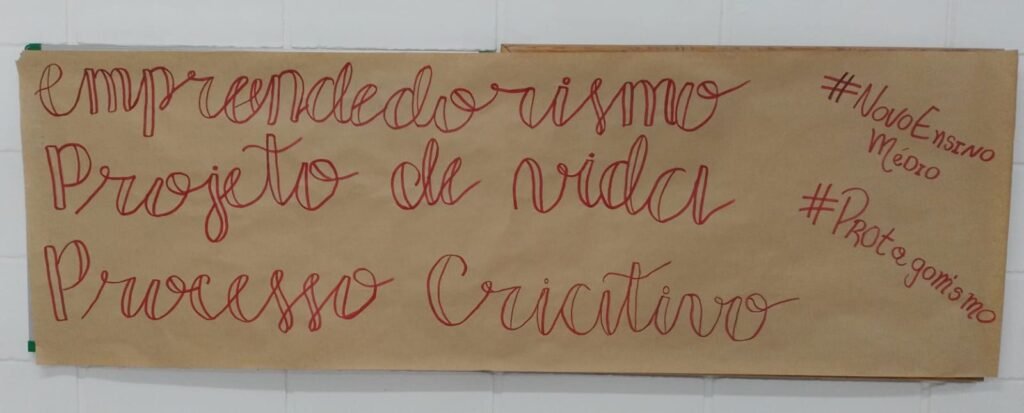 emprendedorismo
Projeto de vida
Processo Criativo
#NovoEnsino
Médio
#Protagonismo